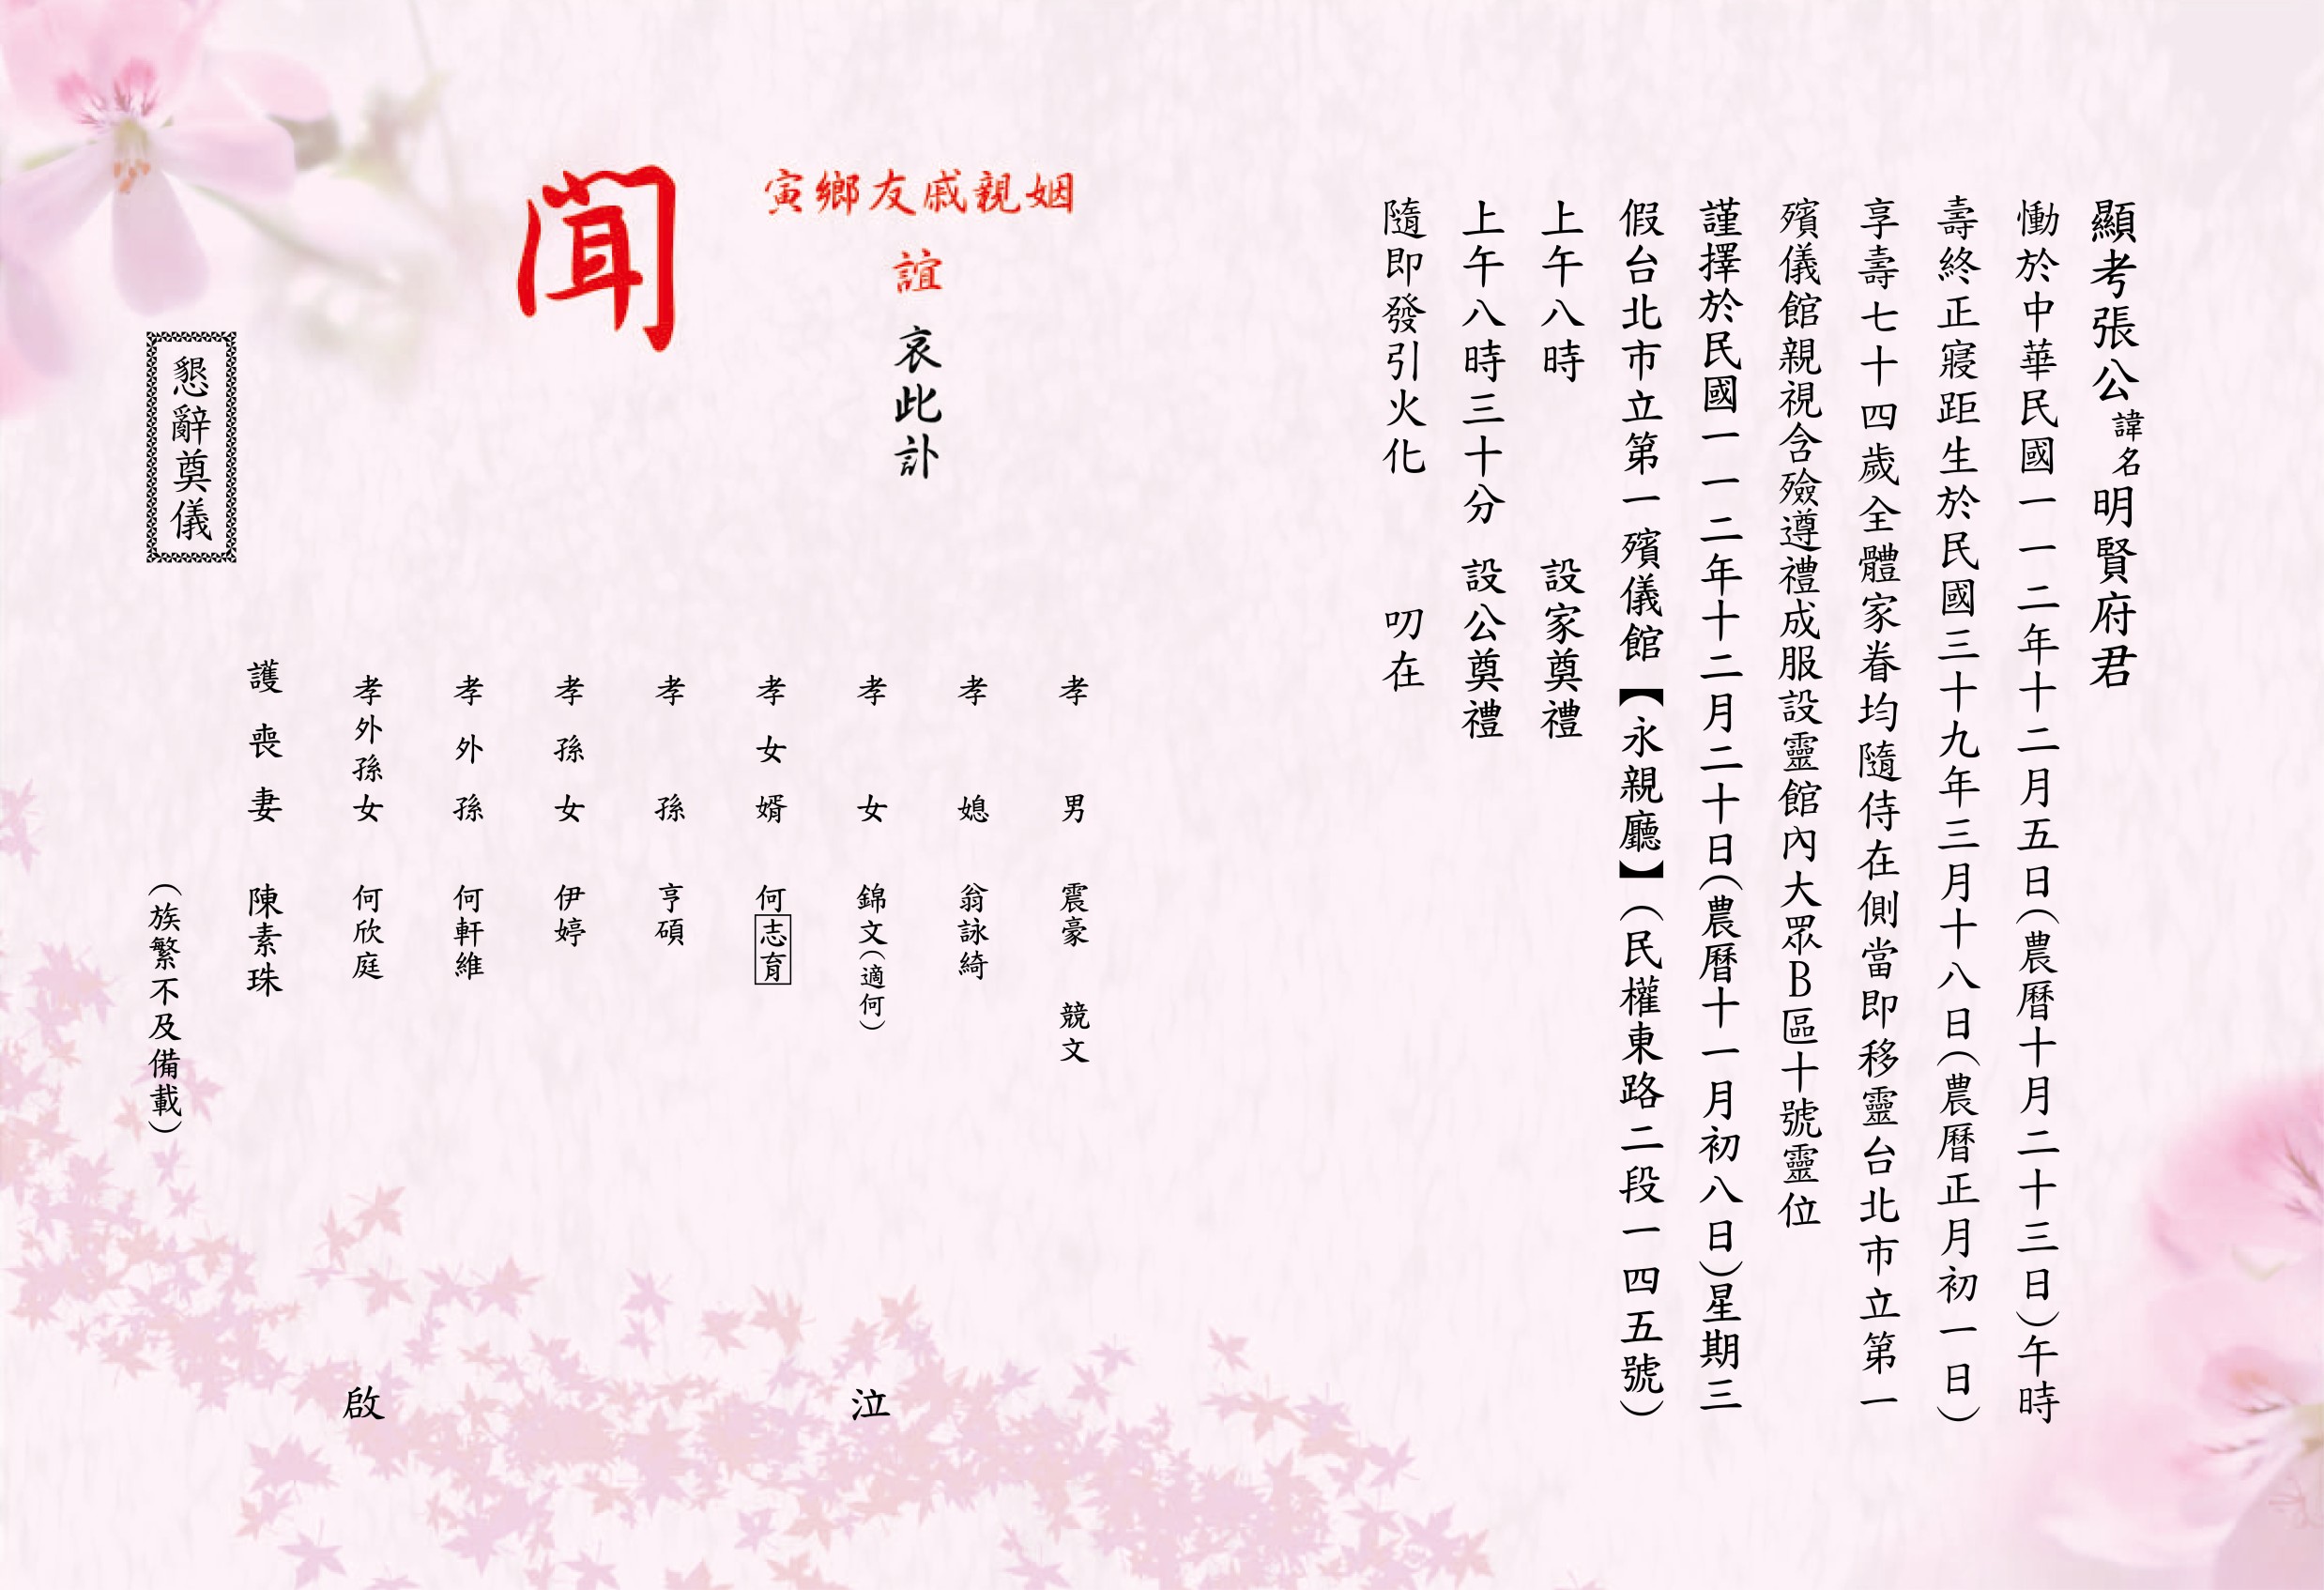 顯考張公諱名明賢府君
慟於中華民國一一二年十二月五日(農曆十月二十三日)午時
壽終正寢距生於民國三十九年三月十八日(農曆正月初一日)
享壽七十四歲全體家眷均隨侍在側當即移靈台北市立第一
殯儀館親視含殮遵禮成服設靈館內大眾B區十號靈位
謹擇於民國一一二年十二月二十日(農曆十一月初八日)星期三
假台北市立第一殯儀館【永親廳】(民權東路二段一四五號)
上午八時 設家奠禮
上午八時三十分 設公奠禮
隨即發引火化 叨在
姻親戚友鄉寅
誼 哀此訃
聞
孝男 震豪 競文
孝媳 翁詠綺
孝女 錦文(適何)
孝女婿 何志育
孝孫 亨碩
孝孫女 伊婷
孝外孫 何軒維
孝外孫女 何欣庭
護喪妻 陳素珠
(族繁不及備載)
泣啟
懇辭奠儀